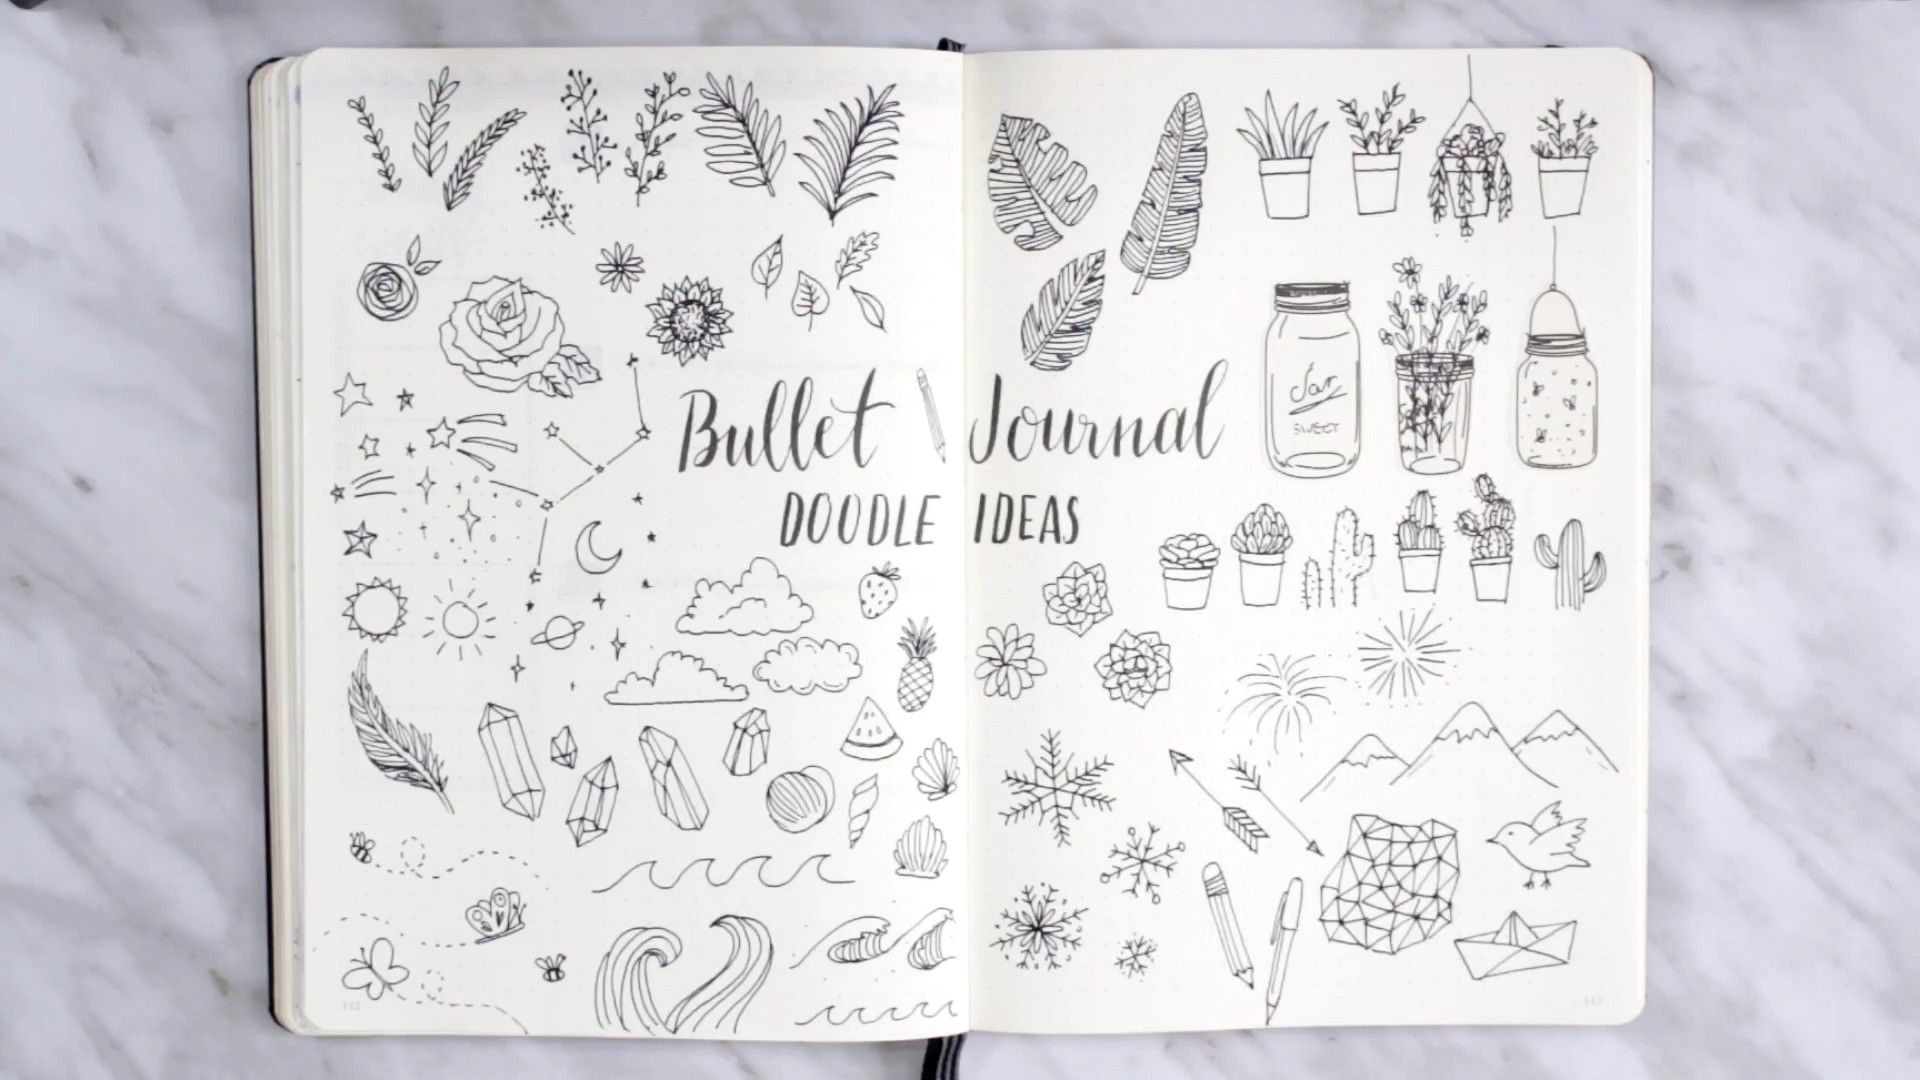 Bullet Journal
DOODLE IDEAS
Jar
SWEET
112
113